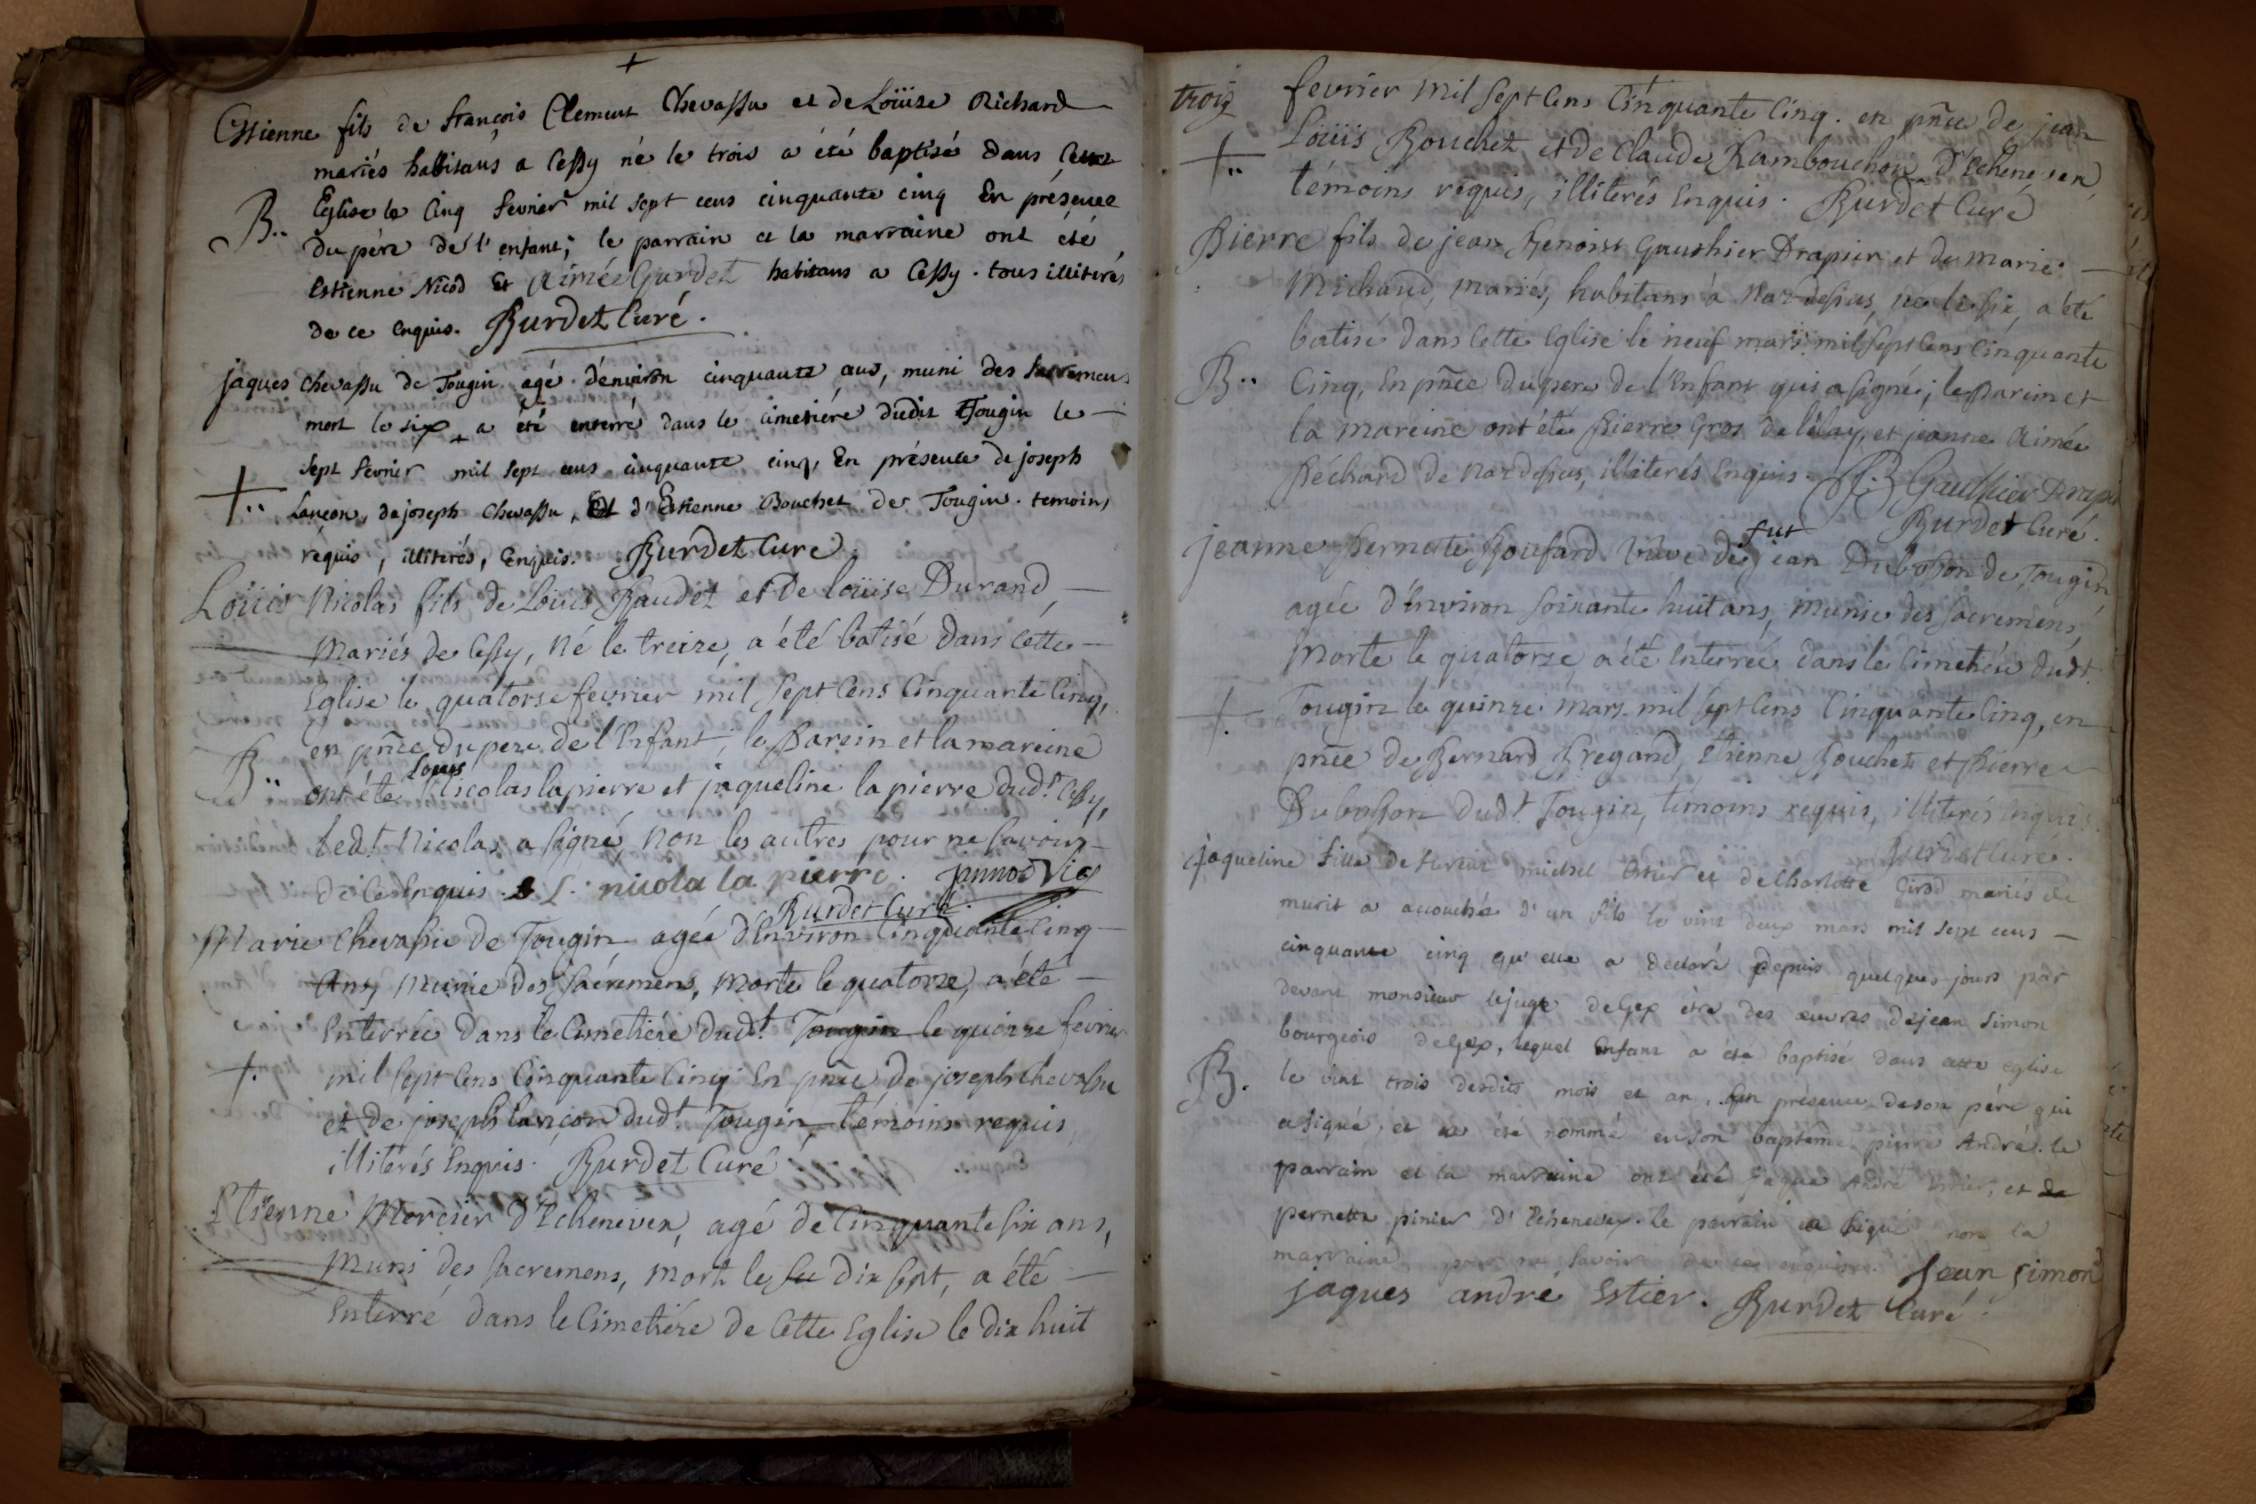 +
Estienne fils de françois Clement Chevassu et de Loüise Richard
mariés habitans a Cessy né le trois a été baptisé dans Cette
Eglise le Cinq fevrier mil sept cens cinquante cinq En présence
B.. du pére de l'enfant; le parrain et la marraine ont été
Estienne Nicod Et Aimée Gurdet habitans a Cessy. tous illiterés
de ce enquis. Burdet Curé.
jaques Chevassu de Tougin agé d'environ cinquante ans, muni des sacremens
mort le six a été enterré dans le cimetiére dudit Tougin le
sept fevrier mil sept cens cinquante cinq, En présence de joseph
+.. Lançon, de joseph Chevassu, Et d'Estienne Bouchet de Tougin. temoins
réquis, illiterés, Enquis. Burdet Curé.
Loüis Nicolas fils de Loüis Baudet et De loüise Durand,
Mariés de Cessy, Né le treize, a été batisé dans Cette
Eglise le quatorse fevrier mil sept Cens Cinquante Cinq,
en pñce du pere de l'Enfant, le Parein et la mareine
B.. ont été Louis Nicolas lapierre et jaqueline la pierre dud.t Cessy,
Led.t Nicolas a signé, Non les autres pour ne savoir
de Ce Enquis. L. nicola la pierre. jannod Vic
Burdet Curé.
Marie Chevassu de Tougin, agée d'Environ Cinquante Cinq
Ans, Munie des sacremens, morte le quatorze, a été
Enterrée dans le Cimetiére dud.t Tougin le quinze fevrier
+. mil sept Cens Cinquante Cinq En pñce de joseph Chevassu
et de joseph lançon dud.t Tougin, témoins requis
illiterés Enquis. Burdet Curé
Etienne Mercier d'Echenevex, agé de Cinquante six ans,
Muni des sacremens, mort le dix sept, a été
Enterré dans le Cimetiére de Cette Eglise le dix huit
trois
fevrier mil sept Cens Cinquante Cinq. en pñce de jean
+.. Loüis Bouchet et de Claude Rambouchon d'Echenevex,
témoins requis, illiterés Enquis. Burdet Curé
Pierre fils de jean Benoist Gauthier Drapier et de Marie
Michaud, mariés, habitans à Nazdessus, né le six, a été
batisé dans Cette Eglise le neuf mars mil sept Cens Cinquante
B.. Cinq, En pñce du pere de l'Enfant qui a signé; le Parein et
la mareine ont été Pierre Gros de lélay, et jeanne Aimée
Péchard de Nazdessus, illiterés Enquis. J.B Gauthier Drapier
Burdet Curé.
jeanne Pernette Boufard Veuve de fut jean Dubosson de Tougin,
agée d'Environ soixante huit ans, Munie des sacremens,
Morte le quatorze, a été Enterrée dans le Cimetiére dud.t
+. Tougin le quinze mars mil sept Cens Cinquante Cinq, en
pñce de Bernard Bregand, Etienne Bouchet et Pierre
Dubosson dud.t Tougin, témoins requis, illiterés Enquis.
Burdet Curé.
jaqueline fille de michel Estier et de Charlotte Girod mariés de
murit a accouchée d'un fils le vint deux mars mil sept cens
cinquante cinq qu'elle a declaré depuis quelques jours par
devant monsieur le juge de Gex être des œuvres de jean Simon
bourgeois de Gex, lequel Enfant a été baptisé dans cette eglise
B. le vint trois desdits mois et an, En présence de son pére qui
a signé, et a été nommé en son baptême pierre André. le
parrain et la marraine ont été jaques André Estier, et de
pernette pinier d'Echenevex. le parrain a signé non la
marraine pour ne savoir de ce enquise. Jean Simon
jaques andré Estier. Burdet Curé.